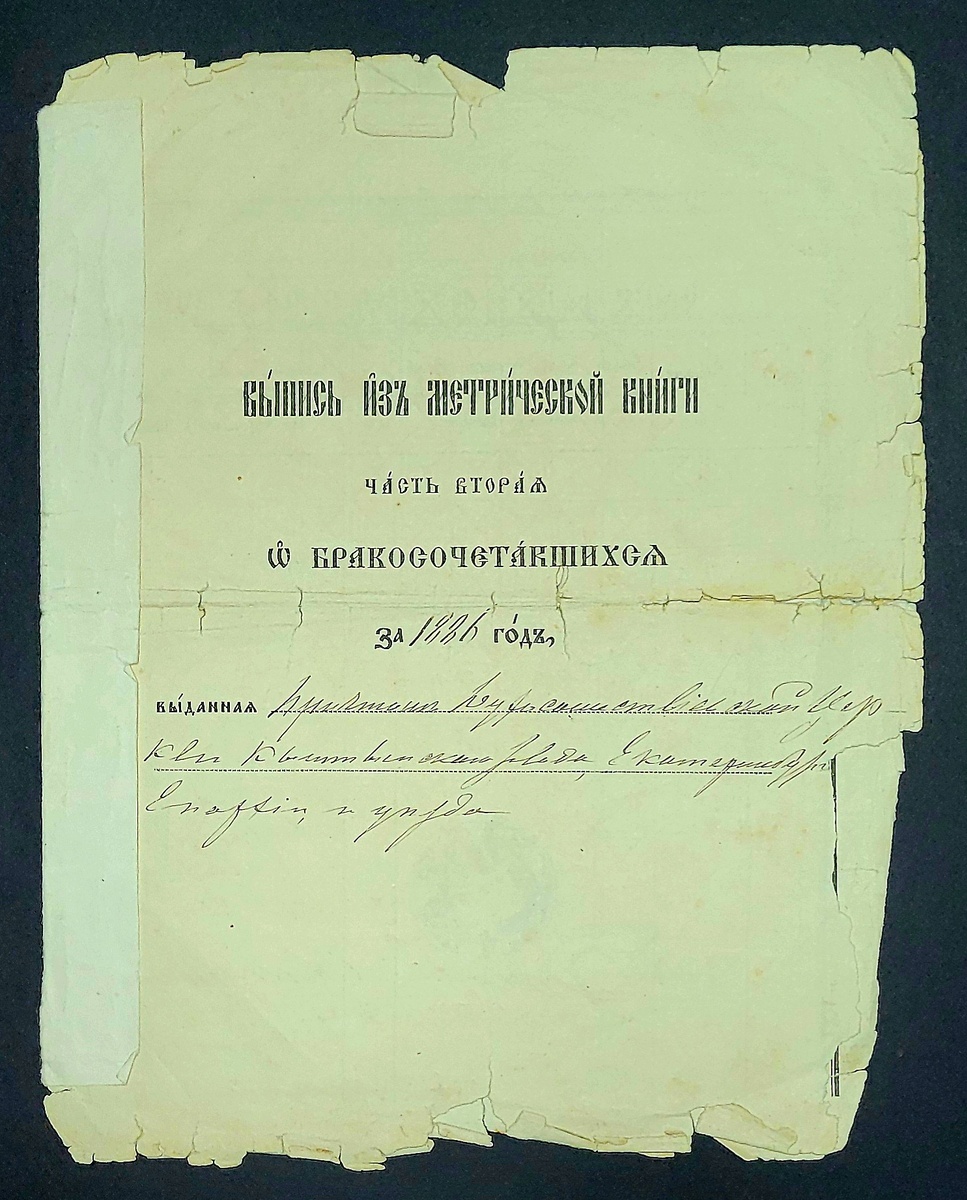 ВЫ́ПИСЬ И҆ЗЪ МЕТРИ́ЧЕСКОЙ КНИ́ГИ
ЧА́СТЬ ВТОРА́Ѧ
Ѡ҆ БРАКОСОЧЕТА́ВШИХСѦ
ЗА 1886 ГО́ДЪ,
ВЫ́ДАННАЯ Причтомъ Духосошествіевской Цер-
кви Кыштымскаго завода, Екатеринбург
Епархіи, и уѣзда